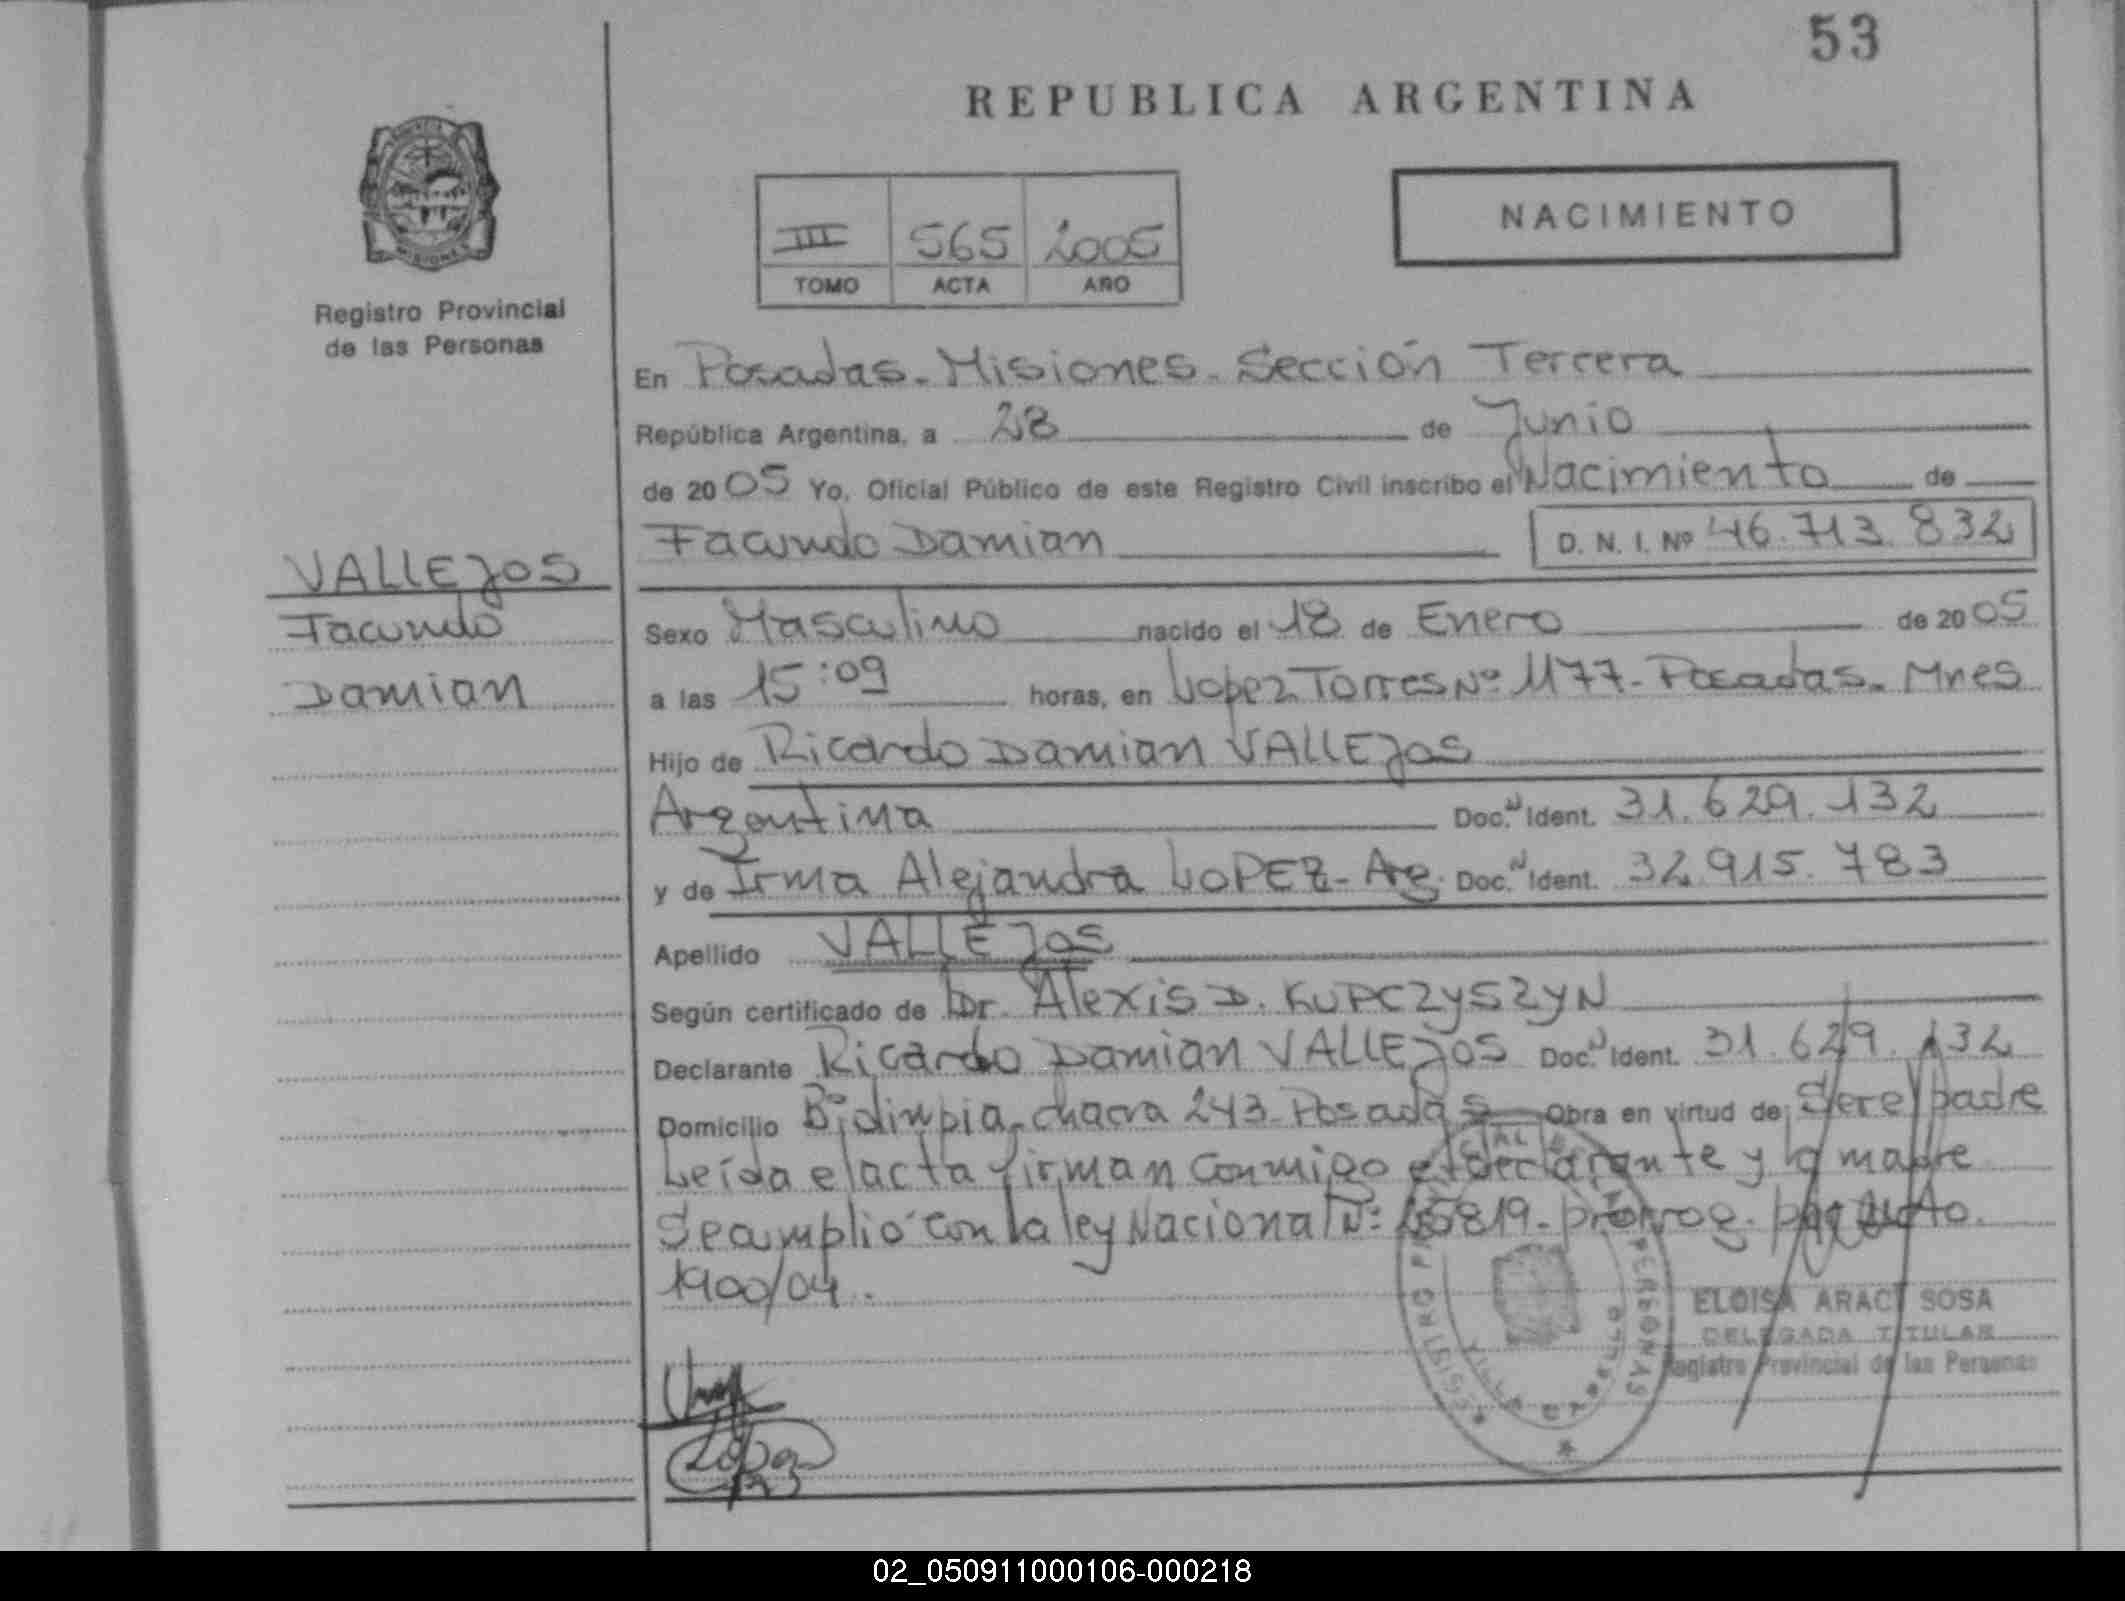 53
REPUBLICA ARGENTINA
NACIMIENTO
III 565 2005
TOMO ACTA AÑO
Registro Provincial
de las Personas
En Posadas - Misiones - Sección Tercera
República Argentina, a 28 de Junio
de 2005 Yo, Oficial Público de este Registro Civil inscribo el Nacimiento de
Facundo Damian D. N. I. Nº 46.713.832
VALLEJOS
Facundo
Damian
Sexo Masculino nacido el 18 de Enero de 2005
a las 15:09 horas, en Lopez Torres Nº 1177 - Posadas - Mnes
Hijo de Ricardo Damian VALLEJOS
Argentina Doc. Ident. 31.629.132
y de Irma Alejandra LOPEZ - Arg. Doc. Ident. 32.915.783
Apellido VALLEJOS
Según certificado de Dr. Alexis D. KUPCZYSZYN
Declarante Ricardo Damian VALLEJOS Doc. Ident. 31.629.132
Domicilio Bº Olimpia - chacra 243 - Posadas Obra en virtud de Ser el padre
Leída el acta firman conmigo el declarante y la madre
Se amplio con la ley Nacional Nº 25819 - prorrog. por
1900/04.
ELOISA ARACI SOSA
DELEGADA TITULAR
Registro Provincial de las Personas
VILLA CABELLO
02_050911000106-000218